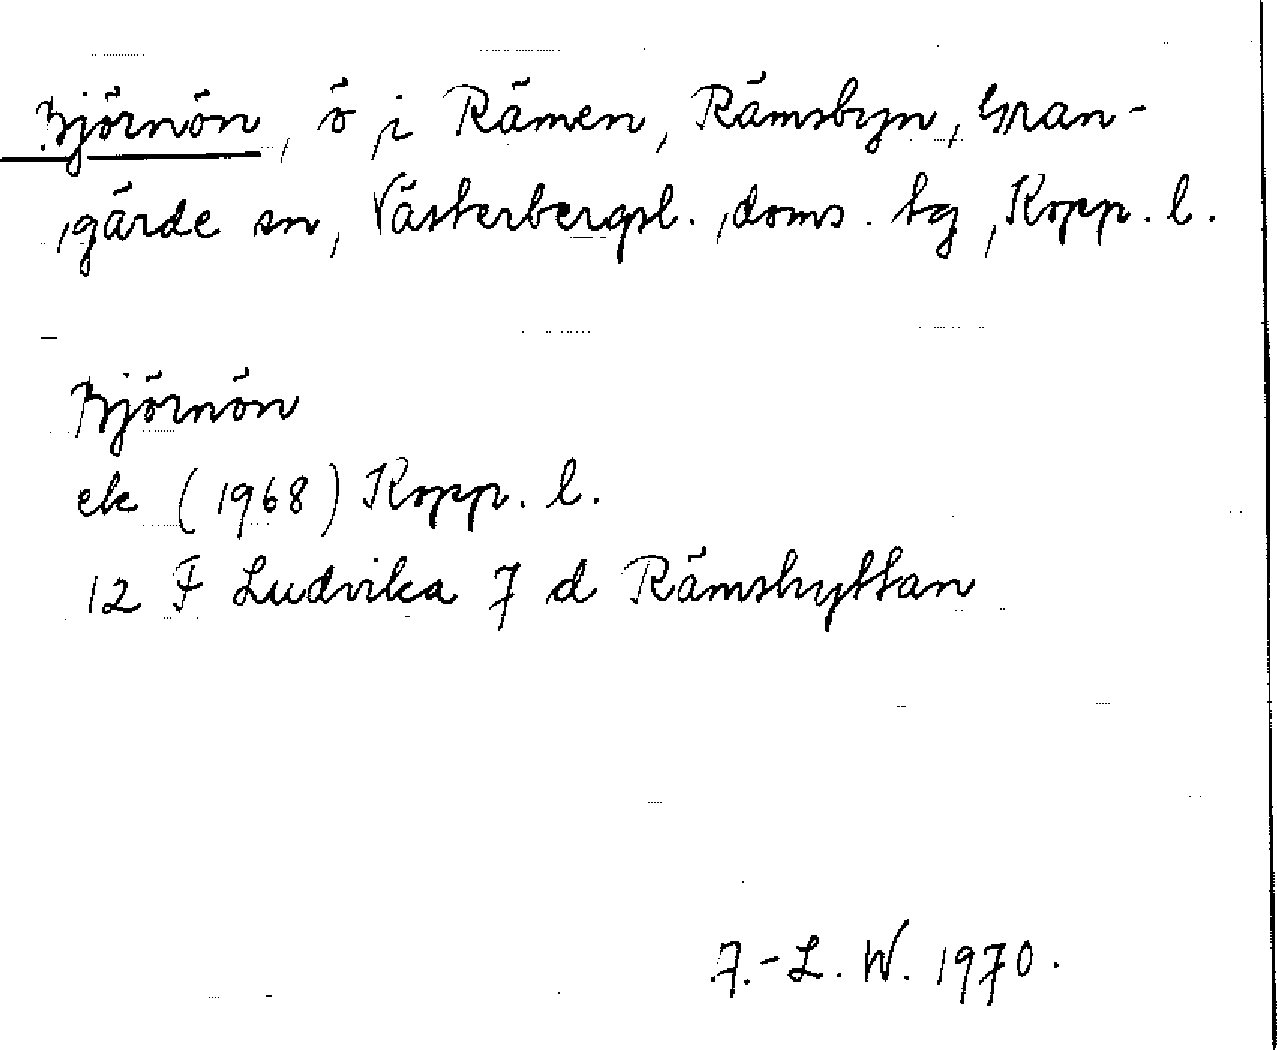 Björnön, ö i Rämen, Rämsbyn, Gran-
gärde sn, Västerbergsl. doms. tg, Kopp. l.
Björnön
ek (1968) Kopp. l.
12 F Ludvika 7 d Rämshyttan
A.-L. W. 1970.